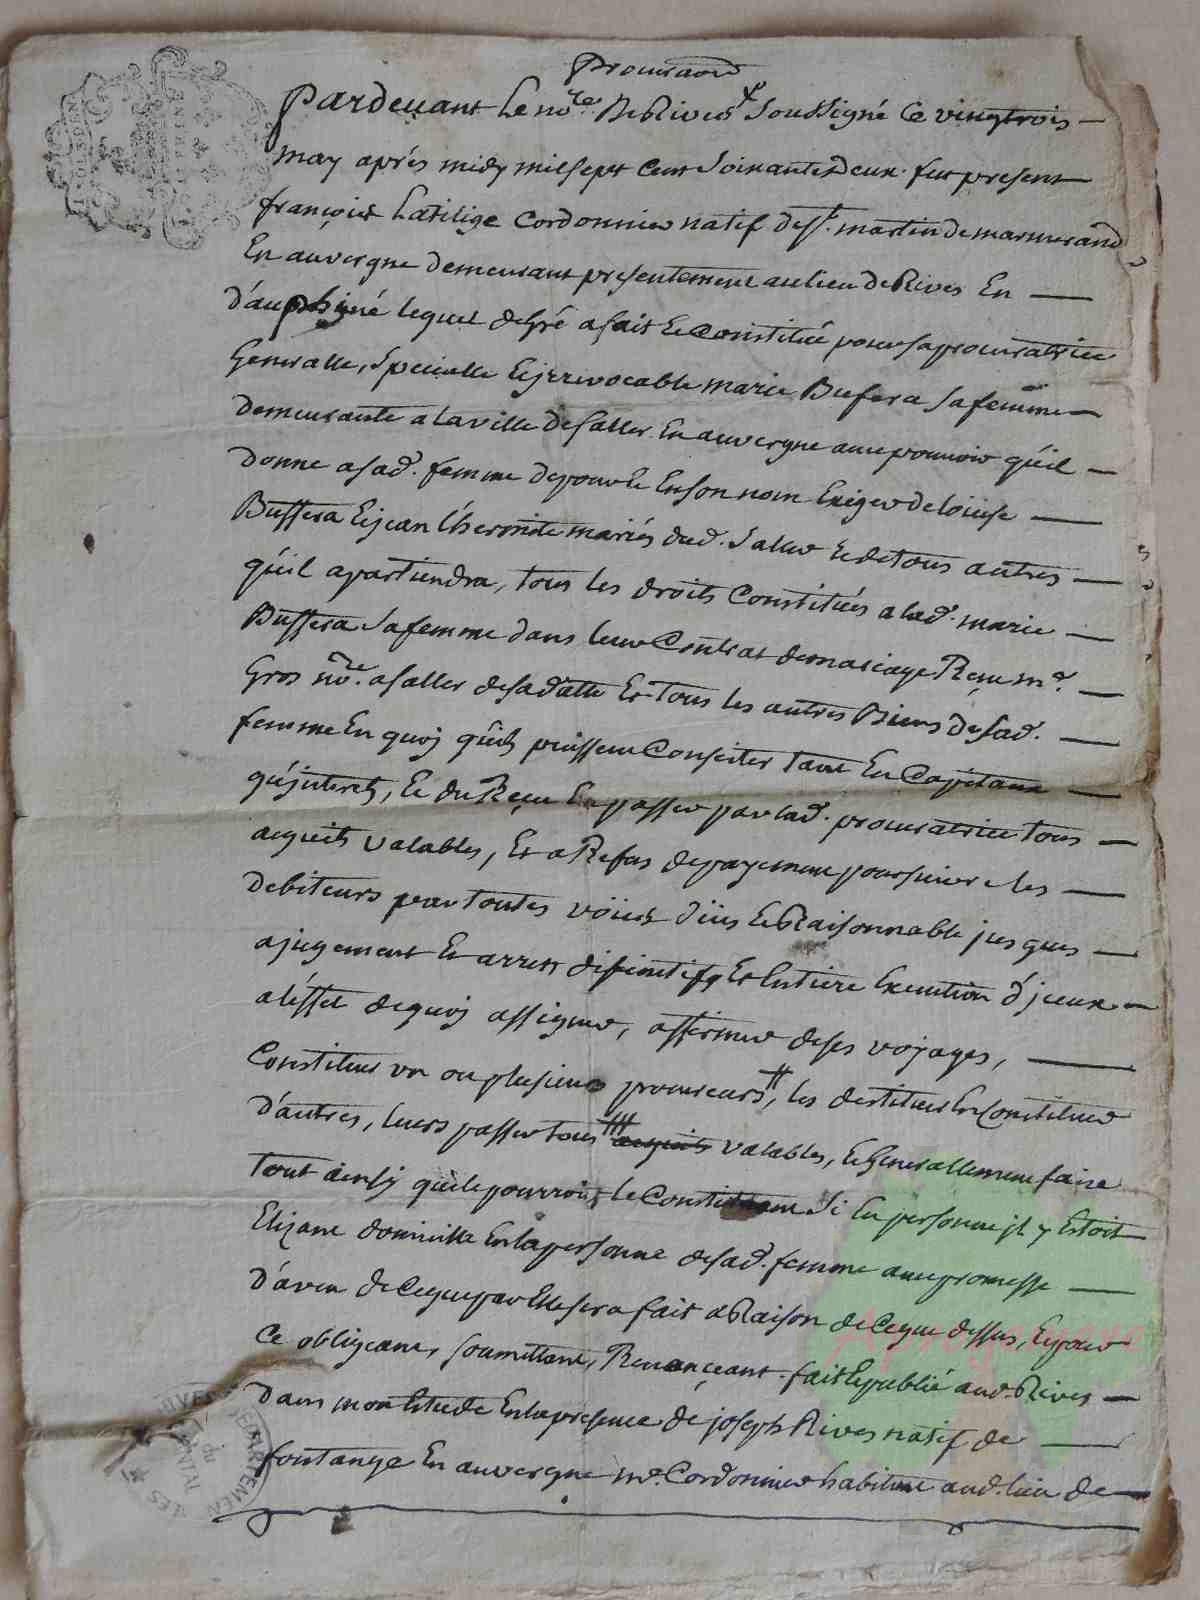 Procuraõn
Pardevant Le nore. De Rives soussigné Ce vingtrois
may après midy mil sept cent soixante et Deux. fut present
françois Latilige Cordonnier natif de st. martin de marmerand
En auvergne demeurant presentement au lieu de Rives En
d'auphiné lequel de gré a fait et Constitué pour sa procuratrice
Generalle, specialle et jrrevocable marie Bufera sa femme
demeurante a la ville de saller En auvergne avec pouvoir qu'il
donne a sad. femme de pour et En son nom Exiger de loüise
Buffera et jean Lheronde mariés dud. saller et de tous autres
qu'il apartiendra, tous les droits Constitués a lad. marie
Buffera sa femme dans leur Contrat de mariage Reçu me.
Gros nore. a saller de sa datte Et tous les autres Biens de sad.
femme En quoy qu'ils puissent Consister tant En Capitaux
qu'jnterets, et du Reçu En passer par lad. procuratrice tous
acquits valables, Et a Refus de payement poursuivre les
debiteurs par toutes voiies düies et Raisonnable jusques
a jugement Et arrets difinitifs Et Entiere Execution d'jceux
a l'effet de quoy assigner, affirmer de ses voyages,
Constituer un ou plusieurs procureurs, les destituer En Constituer
d'autres, leurs passer tous acquits valables, et Generallement faire
tout ainsy qu'il pourroit le Constituant si En personne jl y Estoit
Elizant domicille En la personne de sad. femme avec promesse
D'aveu de Ce que par Elle sera fait a Raison de Ce que dessus, Et pour
Ce obligeant, soumettant, Renonçeant. fait Et publié aud. Rives
Dans mon Etude En la presence de joseph Rives natif de
fontange En auvergne me. Cordonnier habitant aud. lieu de